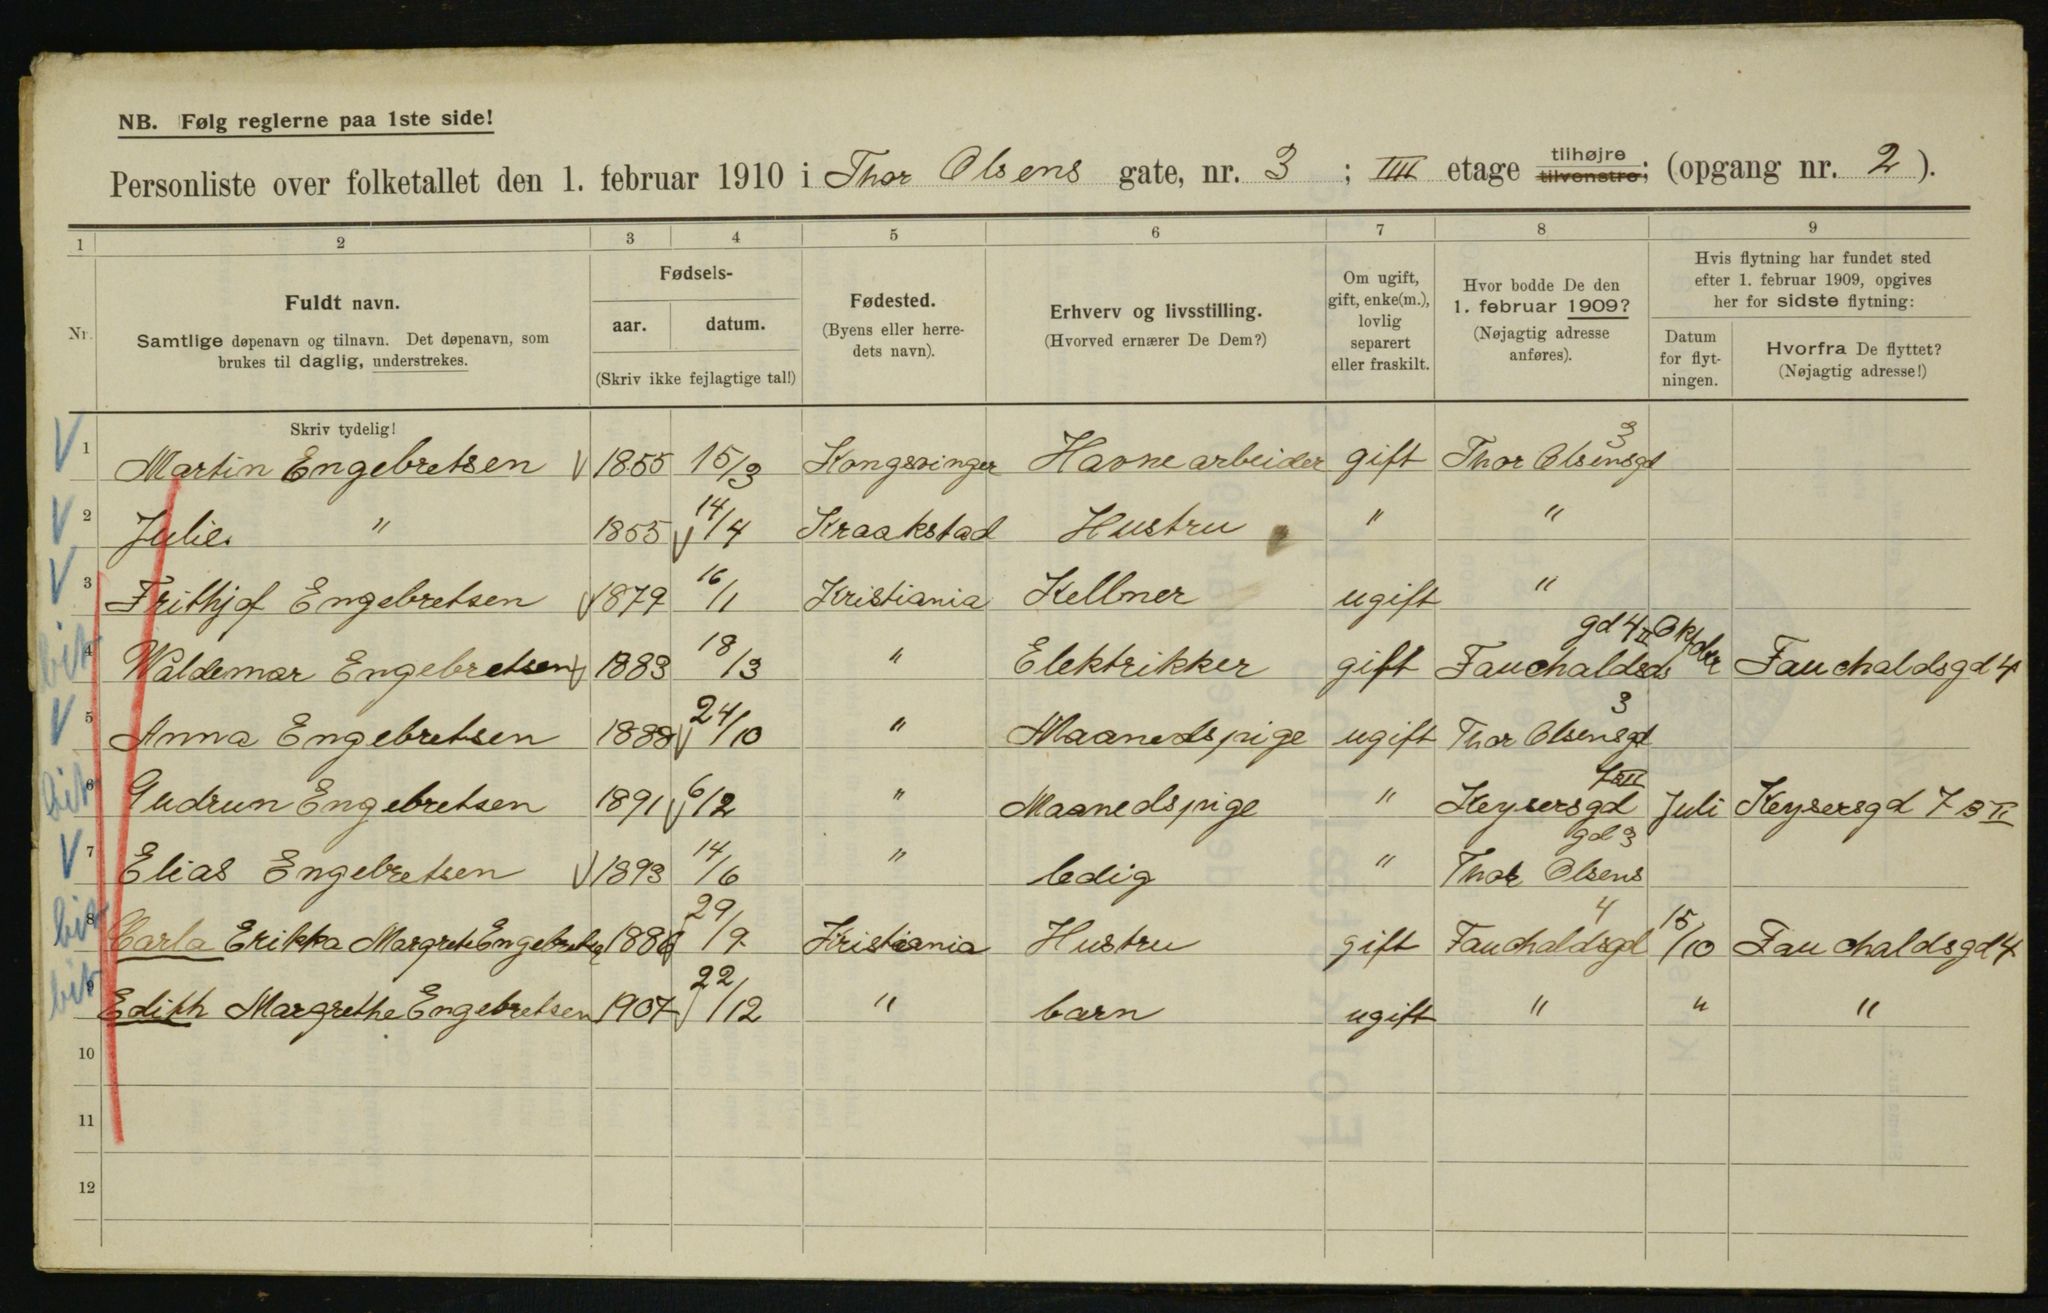 NB. Følg reglerne paa 1ste side!
Personliste over folketallet den 1. februar 1910 i Thor Olsens gate, nr. 3 ; IIII etage tilhøjre tilvenstre; (opgang nr. 2 ).
1 2 3 4 5 6 7 8 9
Nr.
Fuldt navn.
Samtlige døpenavn og tilnavn. Det døpenavn, som
brukes til daglig, understrekes.
Fødsels-
aar. datum.
(Skriv ikke fejlagtige tal!)
Fødested.
(Byens eller herre-
dets navn).
Erhverv og livsstilling.
(Hvorved ernærer De Dem?)
Om ugift,
gift, enke(m.),
lovlig
separert
eller fraskilt.
Hvor bodde De den
1. februar 1909?
(Nøjagtig adresse
anføres).
Hvis flytning har fundet sted
efter 1. februar 1909, opgives
her for sidste flytning:
Datum
for flyt-
ningen.
Hvorfra De flyttet?
(Nøjagtig adresse!)
Skriv tydelig!
V 1 Martin Engebretsen V 1855 15/3 Kongsvinger Havnearbeider gift Thor Olsensgd 3
V 2 Julie " 1855 V 14/4 Kraakstad Hustru " "
V 3 Frithjof Engebretsen V 1879 16/1 Kristiania Kellner ugift "
bit 4 Waldemar Engebretsen V 1883 18/3 " Elektrikker gift Fauchaldsds gd 4 II Oktober Fauchaldsgd 4
V 5 Anna Engebretsen 1888 V 24/10 " Maanedspige ugift Thor Olsensgd 3
bit 6 Gudrun Engebretsen 1891 V 6/2 " Maanedspige " Keysersgd 7 Juli Keysersgd 7 B II
V 7 Elias Engebretsen V 1893 14/6 " ledig " Thor Olsens gd 3
bit 8 Carla Erikka Margrete Engebretsen 1886 29/9 Kristiania Hustru gift Fauchaldsgd 4 15/10 Fauchaldsgd 4
bit 9 Edith Margrethe Engebretsen 1907 V 22/12 " barn ugift " " "
10
11
12